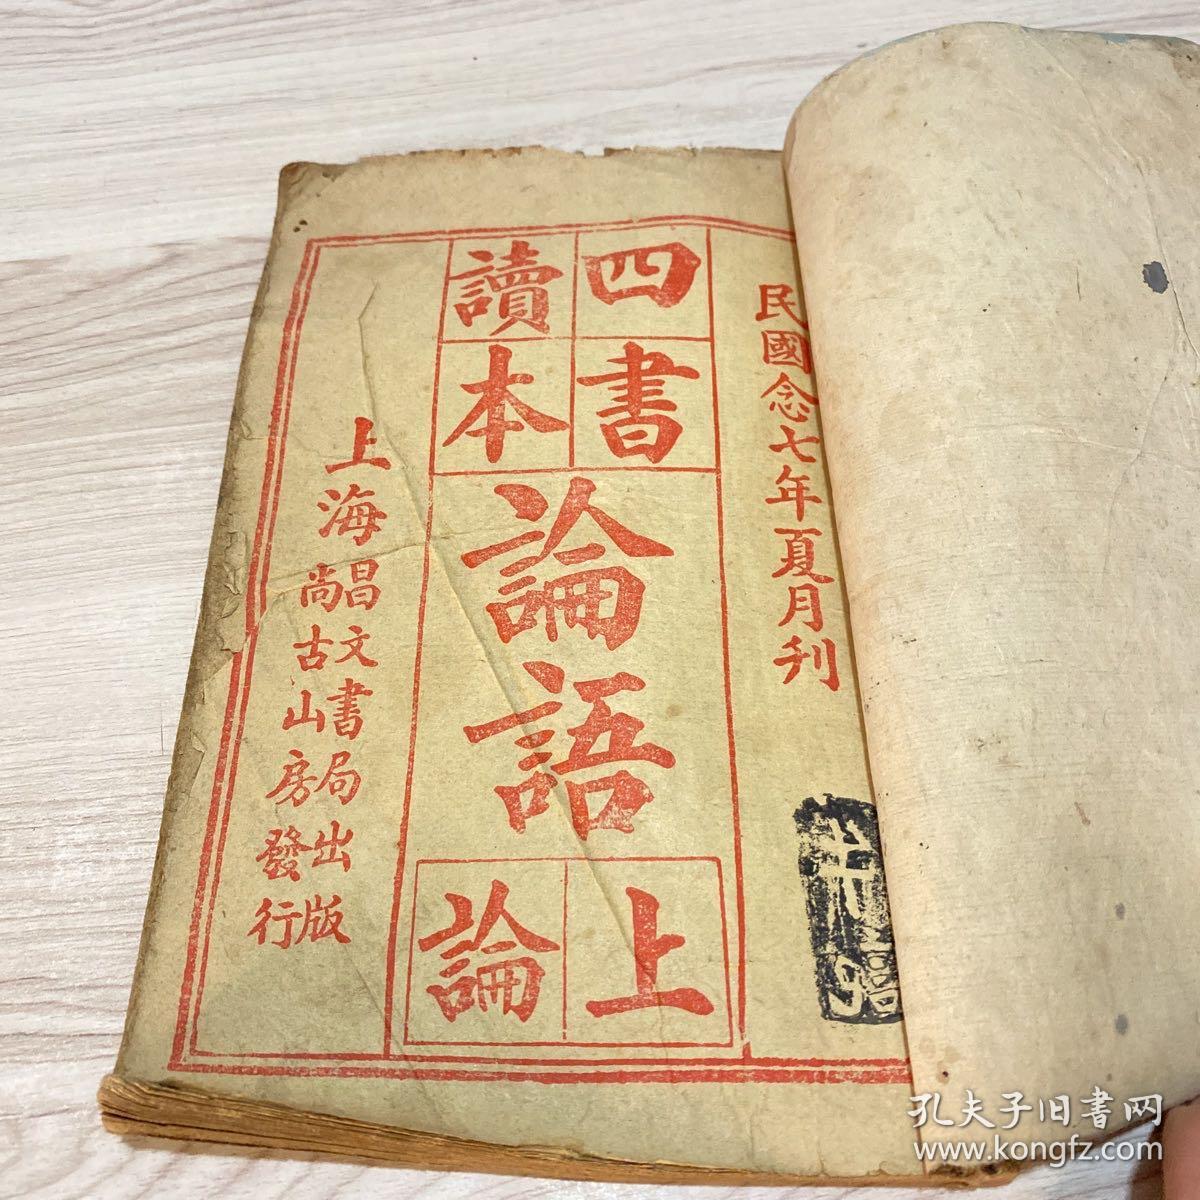 民國念七年夏月刋
四書
讀本
論語
上論
上海昌文書局出版
尚古山房發行
孔夫子旧書网
www.kongfz.com